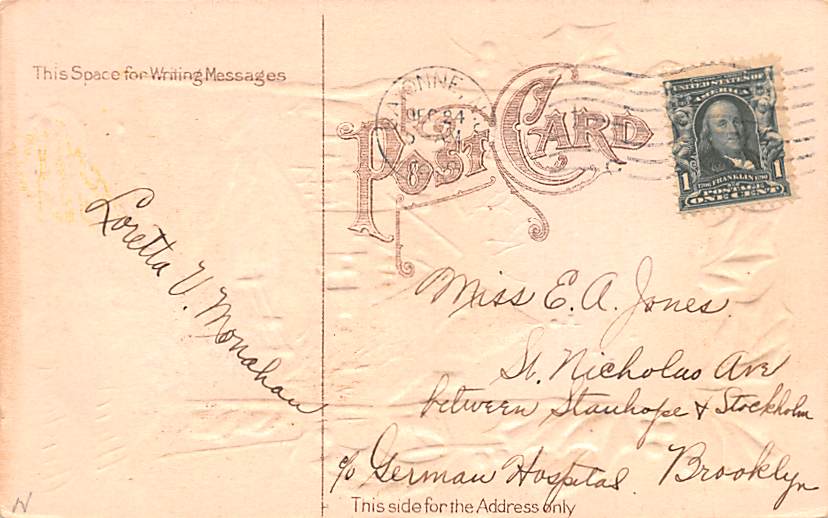 This Space for Writing Messages
Loretta V. Monahan
BAYONNE,
DEC 24
POST CARD
UNITED STATES OF
AMERICA
1
1706 FRANKLIN 1790
POSTAGE
ONE CENT
1
Miss E. A. Jones.
St. Nicholus Ave
between Stanhope & Stockholm
c/o German Hospital. Brooklyn
This side for the Address only
N